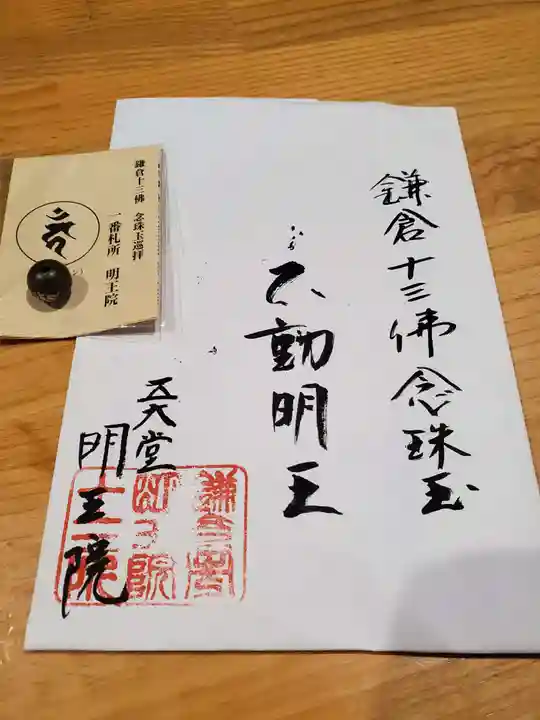 鎌倉十三佛 念珠玉巡拝
一番札所 明王院
鎌倉十三佛念珠玉
不動明王
五大堂
明王院